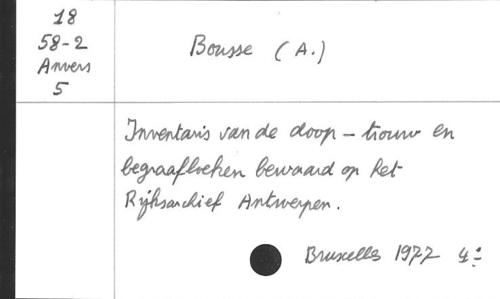 18
58-2
Anvers
5
Bousse (A.)
Inventaris van de doop - trouw en
begraafboeken bewaard op het
Rijksarchief Antwerpen.
Bruxelles 1977 4º